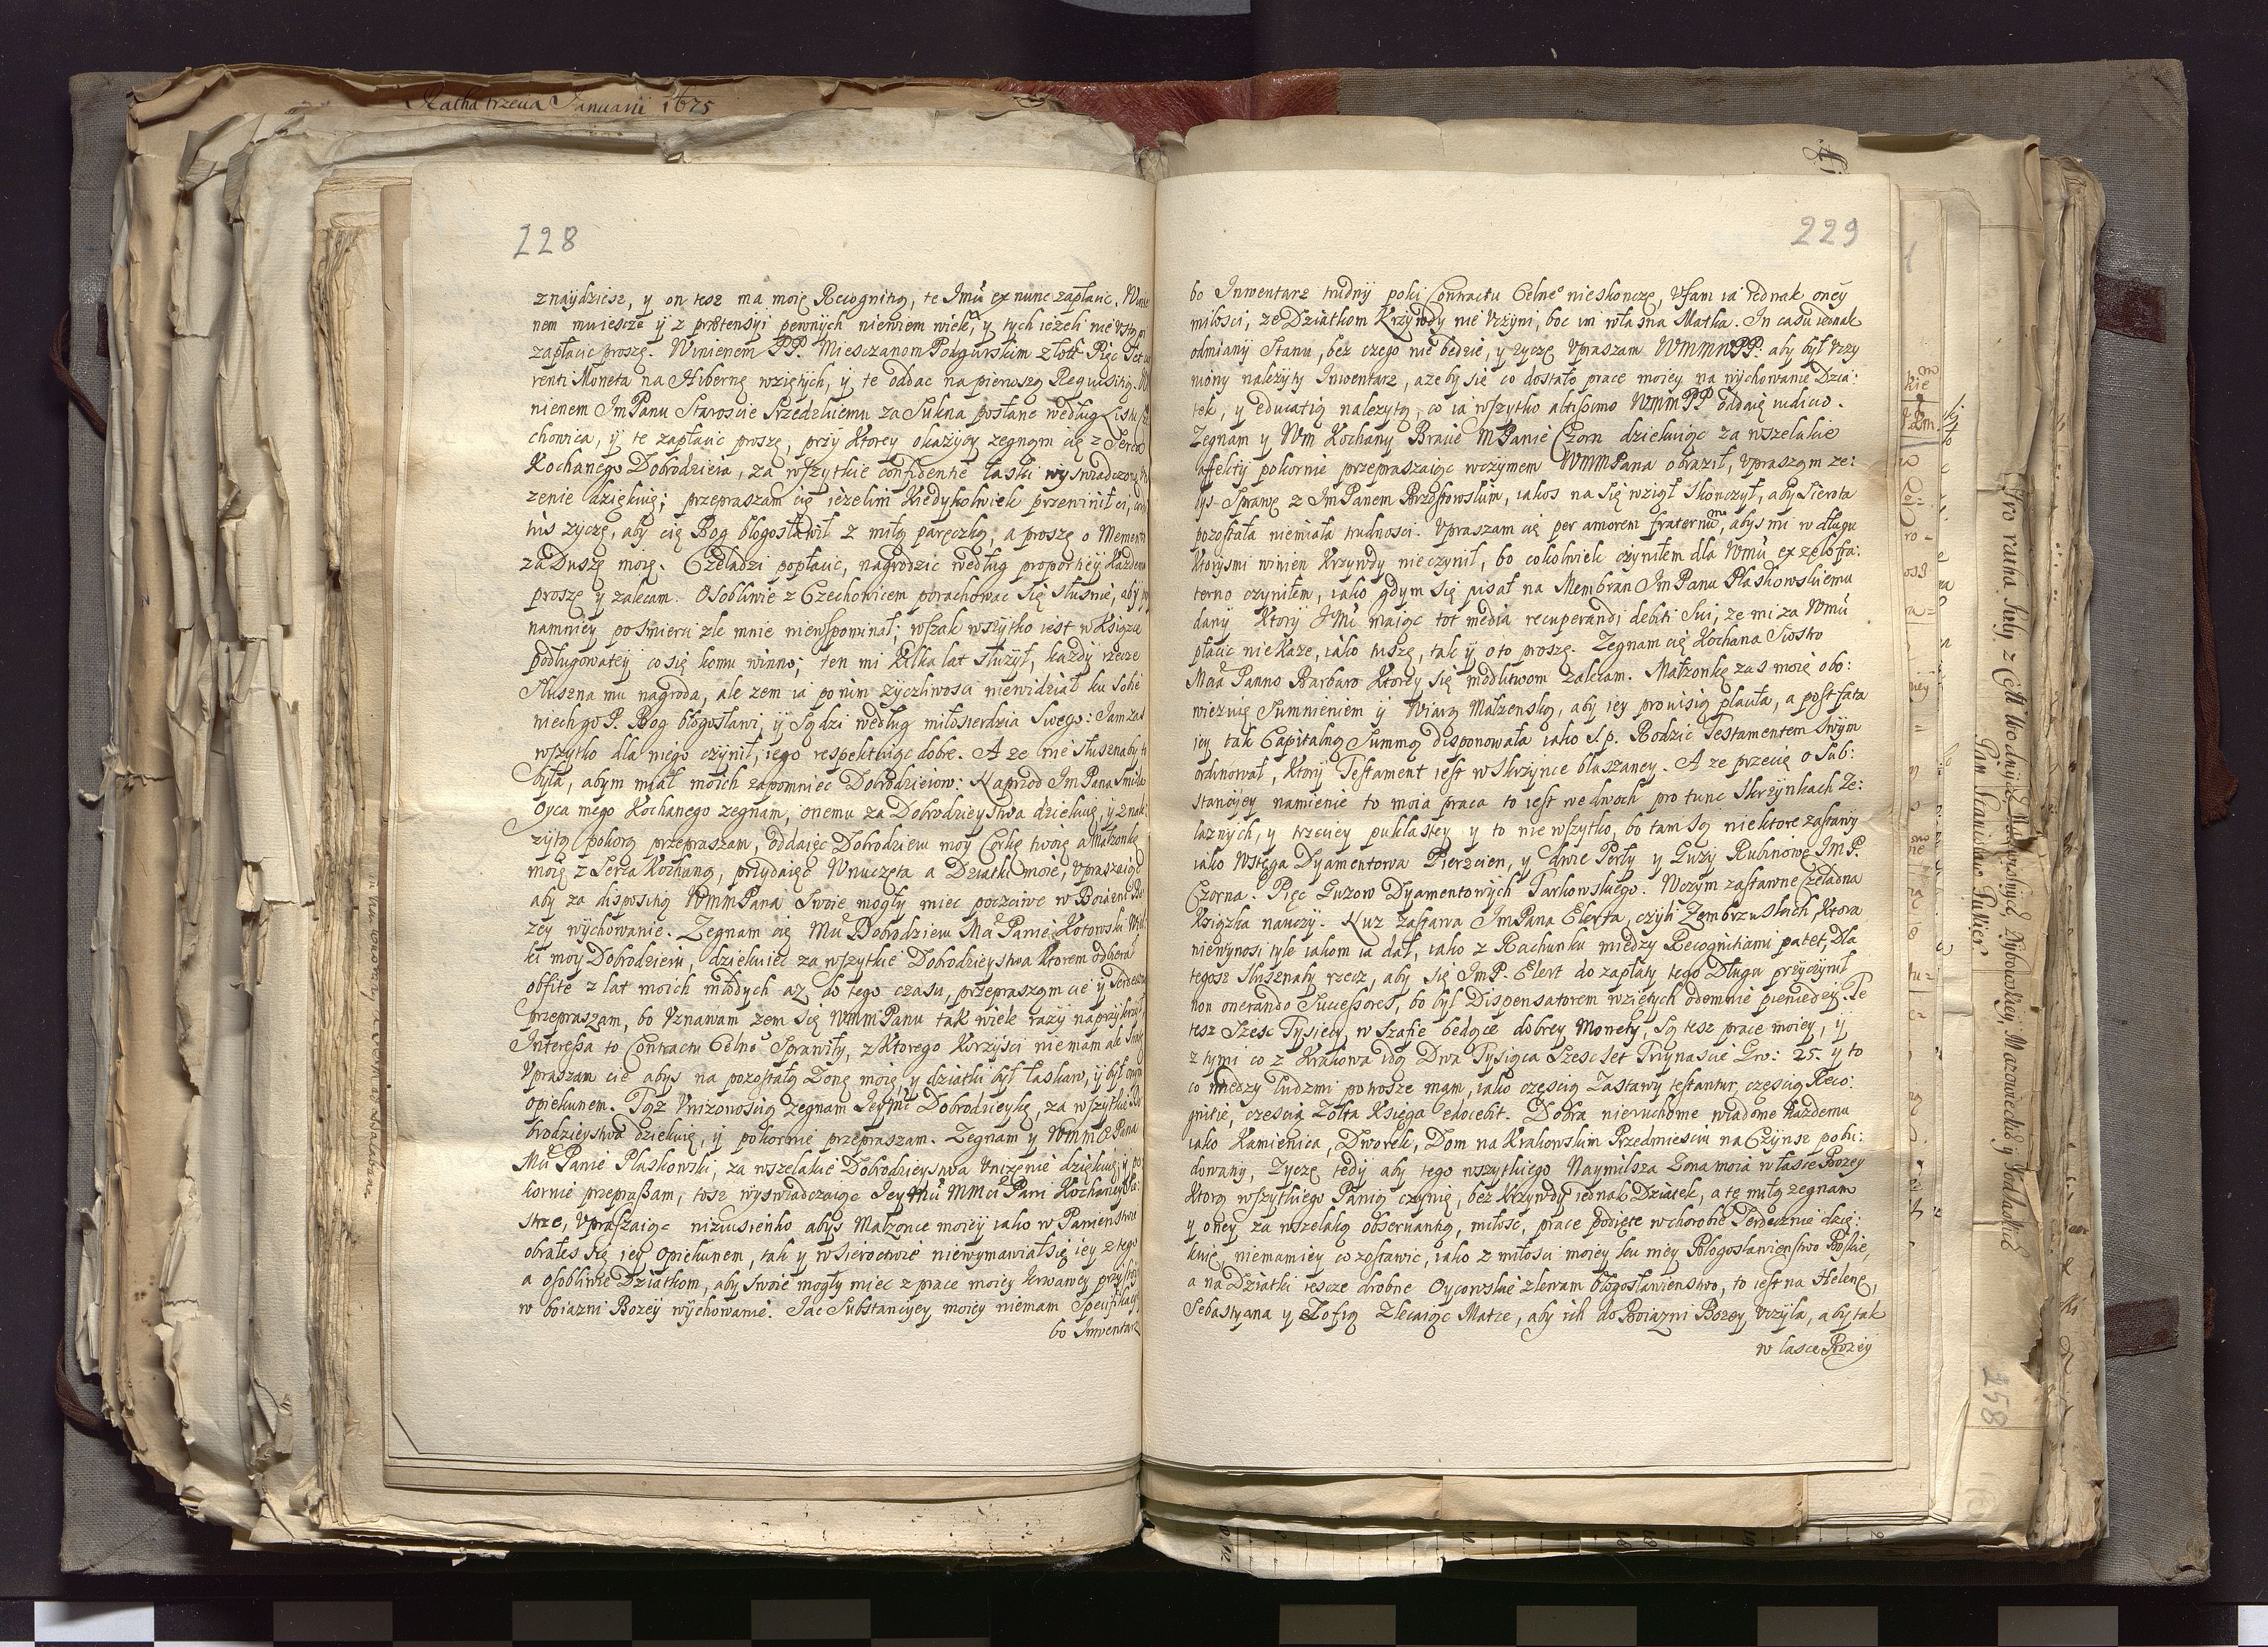 Ratha trzecia Januarii 1675
228
znaydziesz, y on tesz ma moię Recognitią, te Jmũ ex nunc zapłacic.
nem mu ieszcze ÿ z prætensÿi pewnÿch niewiem wiele, y tych ieżeli nie
zapłacic proszę. Winienem PP. Miesczanom Podgurskim złott Pięc Set
renti Moneta na Hibernę wziętych, ÿ te oddac na pierwszą Requisitią.
nienem JmPanu Staroscie Srzedzkiemu za Sukna posłane według Listu
chowica, ÿ te zapłacic proszę, przÿ Ktorey okazÿcy zegnam cię z Serca
Kochanego Dobrodzieia, za wszytkie confidentie łaski wyswiadczone
zenie dziękuię; przepraszam cię ieżelim Kiedykolwiek przewinił ci,
tus życzę, aby cię Bog błogosławił z miłą paręczką, a proszę o Memento
za Duszę moię. Czeladzi popłacic, nagrodzic według proportiÿ Kazdemu
proszę y zalecam. Osobliwie z Czechowicem porachowac się słusnie, aby
namniey po smierci zle mnie niewspominał; wszak wszytko iest w Księdze
podługowateÿ co się komu winno; ten mi kilka lat słuzÿł, każdÿ rzecze
słuszna mu nagroda, ale zem ia po nim zyczliwosci niewidział ku sobie
niech go P. Bog błogosławi, ÿ Sądzi według miłosierdzia Swego: Jam zas
wszytko dla niego czynił, iego respektuiąc dobre. A ze nie słuszna by
była, abym miał moich zapomniec Dobrodzieiow: Naprzod JmPana
Oyca mego Kochanego zegnam, onemu za Dobrodzieystwa dziękuię, ÿ
zÿtą pokorą przepraszam, oddaięc Dobrodzieiu moy Corkę twoię a Małzonkę
moię z Serca Kochaną, przÿdaięc Wnuczęta a Dziatki moie, vpraszaięc
aby za disposicią WMMPana Swoie mogły miec poczciwe w Boiazni
zey wÿchowanie. Zegnam cię Mũ Dobrodzieiu Mã Panie Kotowski
ki moy Dobrodzieiu, dziekuięc za wszytkie Dobrodzieystwa Ktorem odbierał
obfite z lat moich młodych az do tego czasu, przepraszam cie ÿ
przepraszam, bo Vznawam żem się WmmPanu tak wiele razÿ naprzÿkrzył
Interessa to Contractu Celnẽ sprawiłÿ, z Ktorego Korzÿsci niemam ale
Vpraszam cie abys na pozostałą Zonę moię, y dziatki był łaskaw, ÿ był
opiekunem. Tąż Vnizonoscią zegnam Jeÿmc Dobrodzieykę, za wszytkie
brodzieystwa dziekuię, ÿ pokornie przepraszam. Zegnam y WmmPana
Mũ Panie Plaskowski, za wszelakie Dobrodzieystwa Vnizenie dziękuię, ÿ
kornie przepraszam, tosz wyswiadczaiąc Jeymũ MMci Pani Kochaneÿ
strze, Vpraszaiąc nizusienko abys Małzonce moieÿ iako w Panienstwie
obrałes się ieÿ opiekunem, tak y w sieroctwie niewymawiał się ieÿ z tego
a osobliwie Dziatkom, aby swoie mogły miec z prace moieÿ krwawey
w boiazni Bożeÿ wÿchowanie. Jac Substanciÿeÿ moieÿ niemam
bo Inwentarz
229
bo Inwentarz trudnÿ poki Contractu Celnẽ nieskonczę, Vfam ia iednak oneÿ
miłosci, ze Dziatkom Krzywdy nie Vczÿni, boc im własna Matka. In casu iednak
odmianÿ Stanu, bez czego nie bedzie, y zycze Vpraszam WMMMPP. aby był Vczy
nionÿ należyty Inwentarz, azeby się co dostało prace moieÿ na wÿchowanie Dzia:
tek, y educatią nalezytą, co ia wszytko altissimo WmmPP oddaię iudicio.
Zegnam y Wm Kochany Bracie MPanie Czorn dziekuiąc za wszelakie
affekty pokornie przepraszaiąc wczymem WMMPana obraził, Vpraszam ze:
bys Sprawę z JmPanem Brzostowskim, iakos na się wziął skonczÿł, aby Sierota
pozostała niemiała trudnosci. Vpraszam cię per amorem fraternum, abys mi w długu
ktorysmi winien krzywdy nieczynił, bo cokolwiek czyniłem dla Wmũ ex zelo fra:
terno czyniłem, iako gdym się pisał na Membran JmPanu Plaskowskiemu
dany Ktory JMũ maiąc tot media recuperandi debiti sui, ze mi za Wmũ
płacic niekaze, iako tuszę, tak ÿ o to proszę. Zegnam cię Kochana Siostro
Mãa Panno Barbaro Ktorey się modlitwom zalecam. Małżonkę zas moię obo:
wiezuię Sumnieniem ÿ Wiarą Małżenską, aby iey prowisią płaciła, a post fata
iey tak Capitalną Summą disponowała iako s.p. Rodzic Testamentem swÿm
ordinował, ktorÿ Testament iest w skrzynce blaszaney. A ze przecię o Sub:
stanciÿey namienie to moia praca to iest we dwoch pro tunc skrzynkach że:
laznych, y trzeciey puklastey y to nie wszytko, bo tam są niektore zastawy
iako Wstęga Dyamentowa Pierzcien, y dwie Perły y Guzy Rubinowe JmP.
Czorna. Pięc Guzow Dyamentowych Tarkowskiego. Wczym zastawne Czeladna
Książka nauczy. Nuz zastawa JmPana Elerta, czyli Zembrzuskich, Ktora
niewynosi tyle iakom ia dał, iako z Rachunku miedzy Recognitiami patet, Dla
tegosz słusznaby rzecz, aby się JmP. Elert do zapłaty tego Długu przÿczÿnił
non onerando Successores, bo był Dispensatorem wziętych odemnie pieniedzy. Te
tesz Szesc Tysiecy, w Szafie będące dobrey Monety, są tesz prace moiey, ÿ
z tymi co z Krakowa idą Dwa Tysiąca Szescset Trzynascie Gr: 25. y to
co miedzy ludzmi ponosze mam, iako czescią Zastawy testantur, częscią Reco:
gnitie, czescią Zołta Księga edocebit. Dobra nieruchome wiadome każdemu
iako Kamienica, Dworek, Dom na Krakowskim Przedmiesciu na Czÿnsz pobu:
dowany, Zyczę tedy aby tego wszytkiego Naymilsza Zona moia w łasce Bozey
Ktorą wszytkiego Panią czynię, bez Krzywdy iednak Dziatek, a tę miłą zegnam
y oney za wszelaką obserwantią, miłosc, prace podięte w chorobie Serdecznie dzię:
kuię, niemam iey co zostawic, iako z miłosci moiey ku niey Błogosławienstwo Boskie,
a na Dziatki iescze drobne Oycowskie zlewam błogosławienstwo, to iest na Helenę,
Sebastyana y Zofią Zlecaiąc Matce, aby ich do Boiazni Bozey Vczÿła, aby tak
w lasce Bozey
258